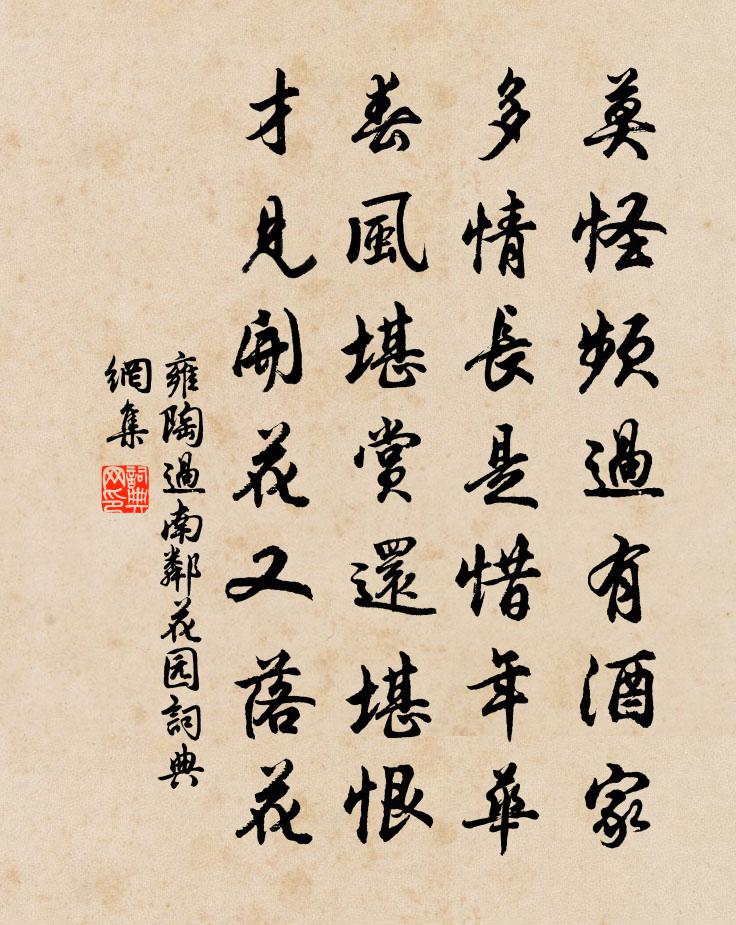 莫怪頻過有酒家
多情長是惜年華
春風堪賞還堪恨
才見開花又落花
雍陶過南鄰花园詞典
網集
詞典
网印